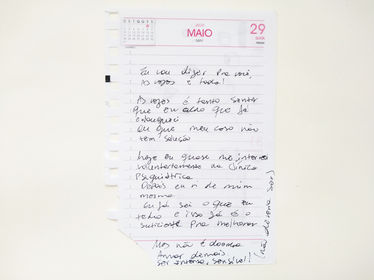 MAIO
29
Eu vou dizer pra você,
Às vezes é foda!
Às vezes é tanto sentir
que eu acho que já
enlouqueci
Ou que meu caso não
tem solução
hoje eu quase me internei
voluntariamente na Clínica
Psiquiátrica
Depois eu ri de mim
mesma
Eu já sei o que eu
tenho e isso já é o
suficiente pra melhorar
Mas não é doença
Amar demais
ser intensa, sensível!